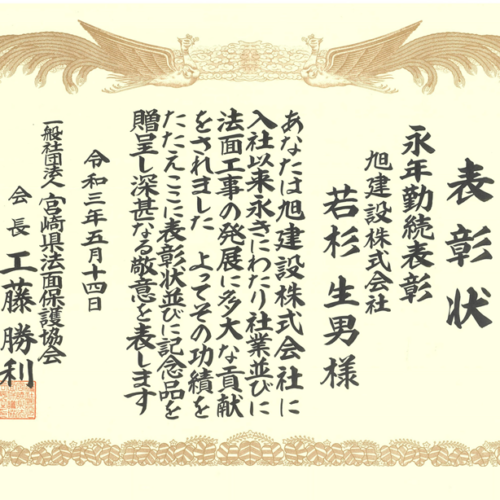 表彰状
永年勤続表彰
旭建設株式会社
若杉生男様
あなたは旭建設株式会社に
入社以来永きにわたり社業並びに
法面工事の発展に多大な貢献
をされました よってその功績を
たたえここに表彰状並びに記念品を
贈呈し深甚なる敬意を表します
令和三年五月十四日
一般社団法人宮崎県法面保護協会
会長 工藤勝利